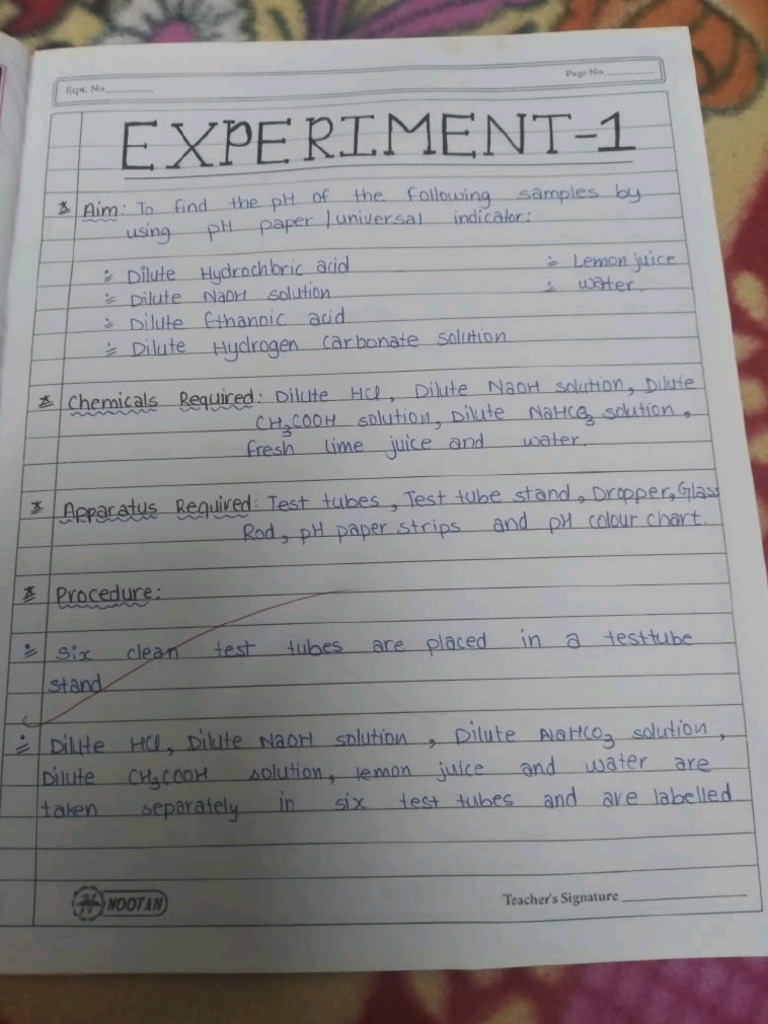 Expt. No.
Page No.
EXPERIMENT-1
* Aim: To find the pH of the following samples by
using pH paper/universal indicator:
÷ Dilute Hydrochloric acid
÷ Lemon juice
÷ Dilute NaOH solution
÷ water.
÷ Dilute Ethanoic acid
÷ Dilute Hydrogen carbonate solution
* Chemicals Required: Dilute HCl, Dilute NaOH solution, Dilute
CH₃COOH solution, Dilute NaHCO₃ solution,
fresh lime juice and water.
* Apparatus Required: Test tubes, Test tube stand, Dropper, Glass
Rod, pH paper strips and pH colour chart.
* Procedure:
÷ Six clean test tubes are placed in a testtube
stand
÷ Dilute HCl, Dilute NaOH solution, Dilute NaHCO₃ solution,
Dilute CH₃COOH solution, lemon juice and water are
taken separately in six test tubes and are labelled
NOOTAN
Teacher's Signature